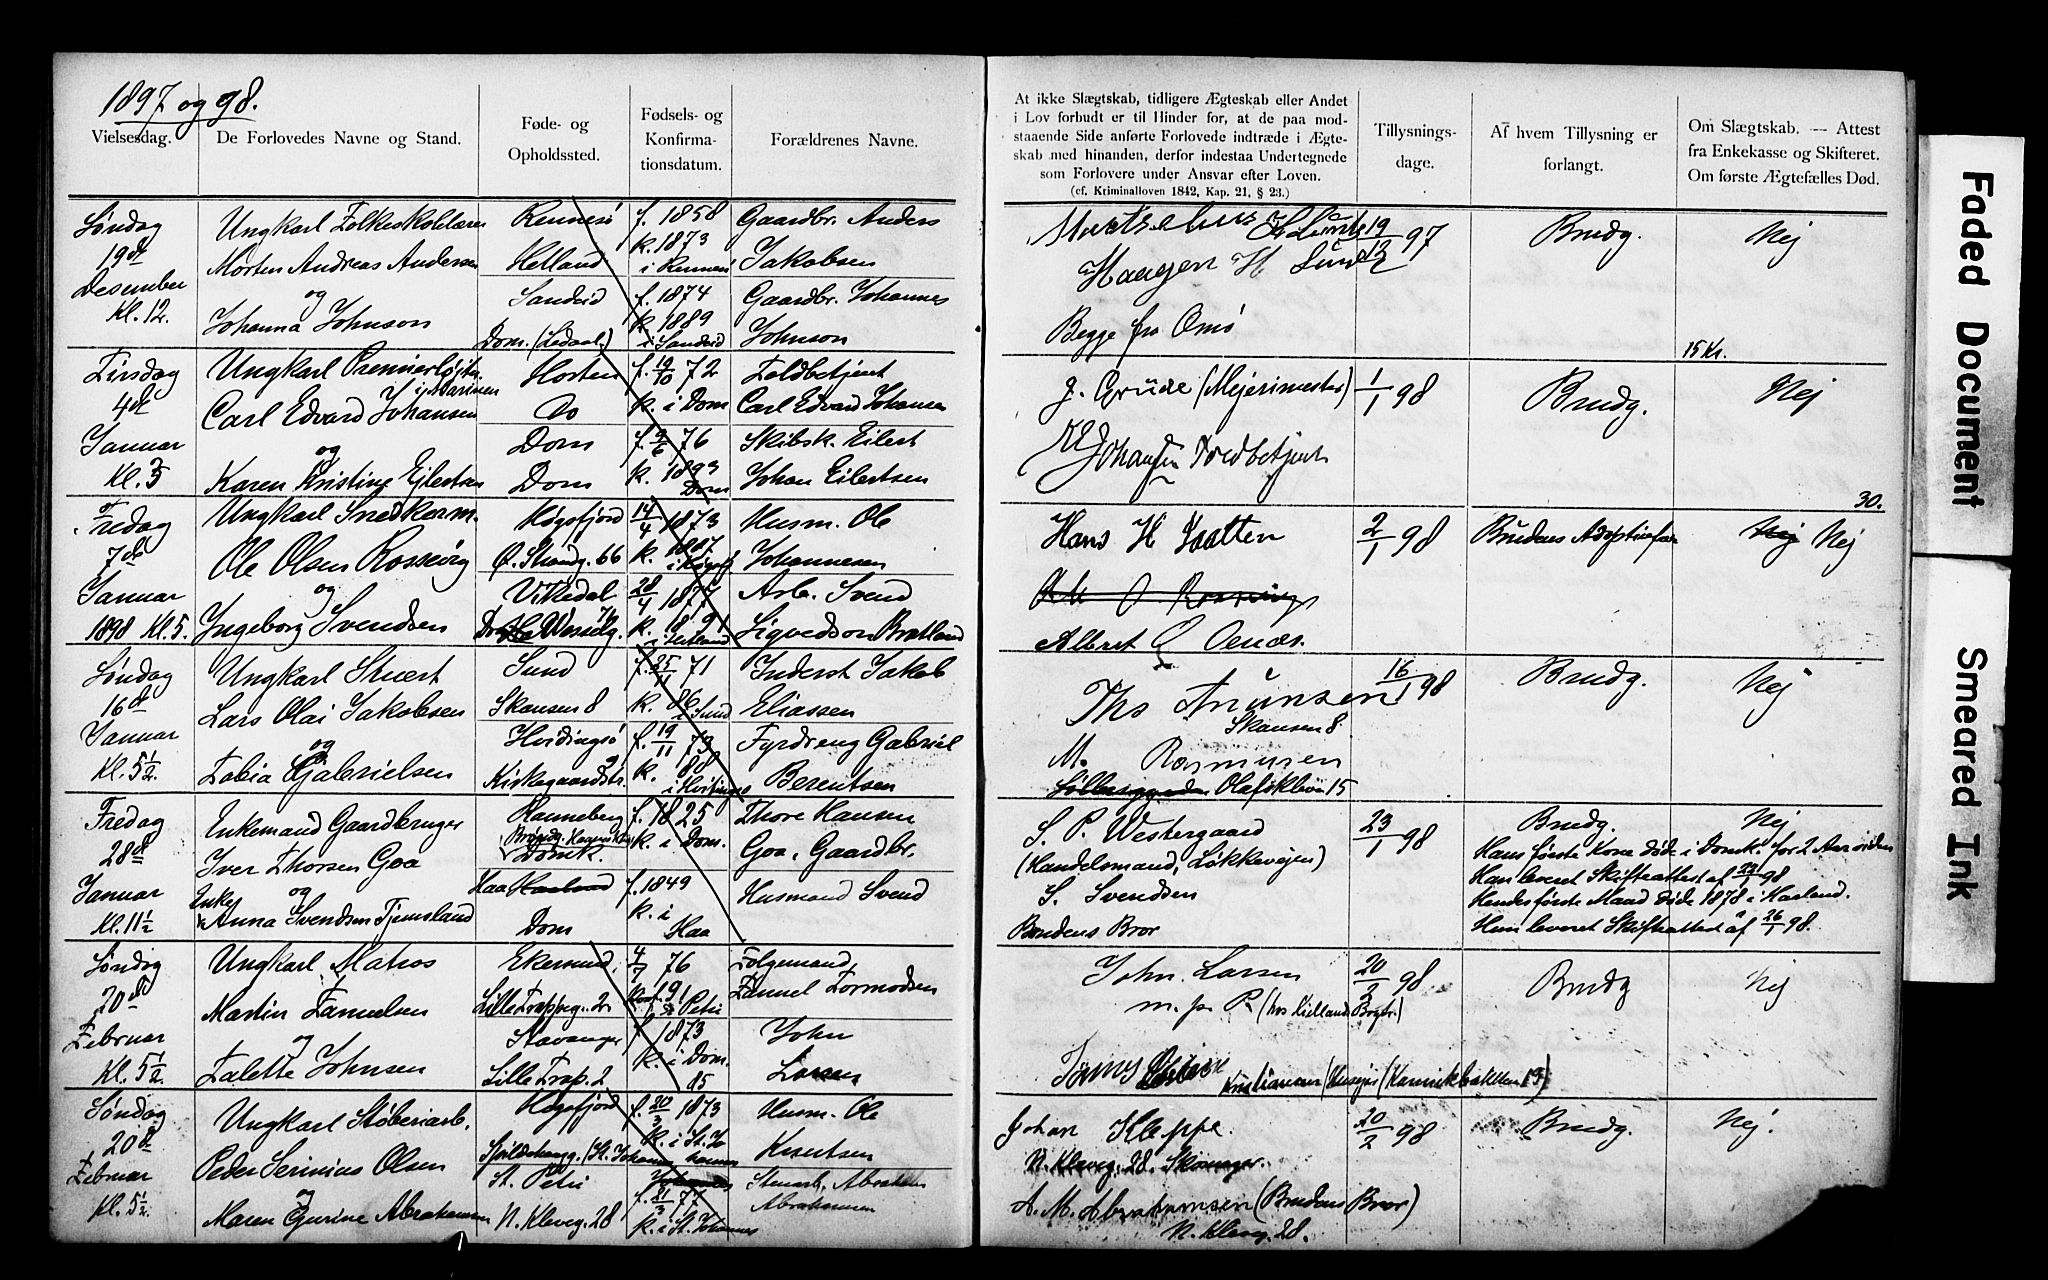 1897 og 98.
Vielsesdag.
De Forlovedes Navne og Stand.
Føde- og
Opholdssted.
Fødsels- og
Konfirma-
tionsdatum.
Forældrenes Navne.
Søndag
19de
Desember
Kl. 12.
Ungkarl Folkeskolelærer
Morten Andreas Andersen
og
Johanna Johnson
Rennesø
Helland
Sandeid
Dom. (Ledaal)
f. 1858
k. 1873
i Rennesø
f. 1874
k. 1889
i Sandeid
Gaardbr. Anders
Jakobsen
Gaardbr. Johannes
Johnson
Tirsdag
4de
Januar
Kl. 5
Ungkarl Premierløjtn.
i Marinen
Carl Edvard Johansen
og
Karen Kristine Ejlertsen
Horten
Do
Dom
Dom
f. 19/10 72
k. i Dom
f. 9/6 76
k. 1893
Dom
Toldbetjent
Carl Edvard Johansen
Skibsk. Eilert
Johan Eilertsen
Fredag
7de
Januar
1898 Kl. 5.
Ungkarl Snedkerm.
Ole Olsen Rossavig
og
Ingeborg Svendsen
Høgsfjord
Ø. Strandg. 66
Vikedal
f. 14/4 1873
k. 1887
i Høgsf.
28/4 1877
k.
Husm. Ole
Johannesen
Arb. Svend
Sigvedson Bratland
Søndag
16de
Januar
Kl. 5 1/2.
Ungkarl Stuert
Lars Olai Jakobsen
og
Tobia Gabrielsen
Sund
Skansen 8
Hvidingsø
Kirkegaardstr.
f. 25/11 71
k. 86
i Sund
f. 19/11 73
k. 88
i Hvitingsø
Inderst Jakob
Eliassen
Fyrdreng Gabriel
Berentsen
Fredag
28de
Januar
Kl. 11 1/2
Enkemand Gaardbruger
Iver Thorsen Goa
og
Enke
Anna Svendsen Tjemsland
Ranneberg
Domk.
Haa
Dom
f. 1825
k. i Dom.
f. 1849
k. i
Haa
Thore Hansen
Goa, Gaardbr.
Husmand Svend
Søndag
20de
Februar
Kl. 5 1/2.
Ungkarl Matros
Martin Samuelsen
og
Talette Johnsen
Ekersund,
Lille Trapveg. 2
Stavanger
Lille Trap. 2
4/7 76
Petri
f. 1873
k. i Dom.
15
Følgemand,
Samuel Tormodsen
John
Larsen
Søndag
20de
Februar
Kl. 5 1/2.
Ungkarl Støberiarb.
Peder Serinius Olsen
og
Maren Gurine Abrahamsen
Høgsfjord
St. Petri
N. Kleveg. 28
f. 20/3 1873
k. i St. Jo
hannes
f. 21/3 77
k. i St. Johannes
Husm. Ole
Knutsen
Stenarb. Abraham
Abrahamsen
At ikke Slægtskab, tidligere Ægteskab eller Andet
i Lov forbudt er til Hinder for, at de paa mod-
staaende Side anførte Forlovede indtræde i Ægte-
skab med hinanden, derfor indestaa Undertegnede
som Forlovere under Ansvar efter Loven.
(cf. Kriminalloven 1842, Kap. 21, § 23.)
Tillysnings-
dage.
Af hvem Tillysning er
forlangt.
Om Slægtskab. — Attest
fra Enkekasse og Skifteret.
Om første Ægtefælles Død.
Haagen H Lund
Begge fra Omø
19/12 97
Brudg.
Nej
15 Kr.
J. Grude (Mejerimester)
Johansen Toldbetjent
1/1 98
Brudg.
Nej
30.
Hans H Taatten
Albret
2/1 98
Brudens Adoptivfar
Nej Nej
Ths
Skansen 8.
M. Rasmusen
Olafskleven 15
16/1 98
Brudg.
Nej
S. P. Westergaard
(Handelsmand, Løkkevejen)
S. Svendsen
Brudens Bror
23/1 98
Brudg.
Nej
Hans første Kone døde i Domk. for 2 Aar siden
Han leveret Skifteattest af 22/1 98
Hendes første Mand døde 1878 i Harland.
Hun leveret Skifteattest af 26/1 98.
John Larsen
m. p. P. (hos Kiellands Brygr.)
20/2 98
Brudg
Nej
Johan Kleppe.
N. Kleveg. 28. Skomager.
A. M. Abrahamsen (Brudens Bror)
N. Kleveg. 28.
20/2 98
Brudg.
Nej.
Faded Document
Smeared Ink